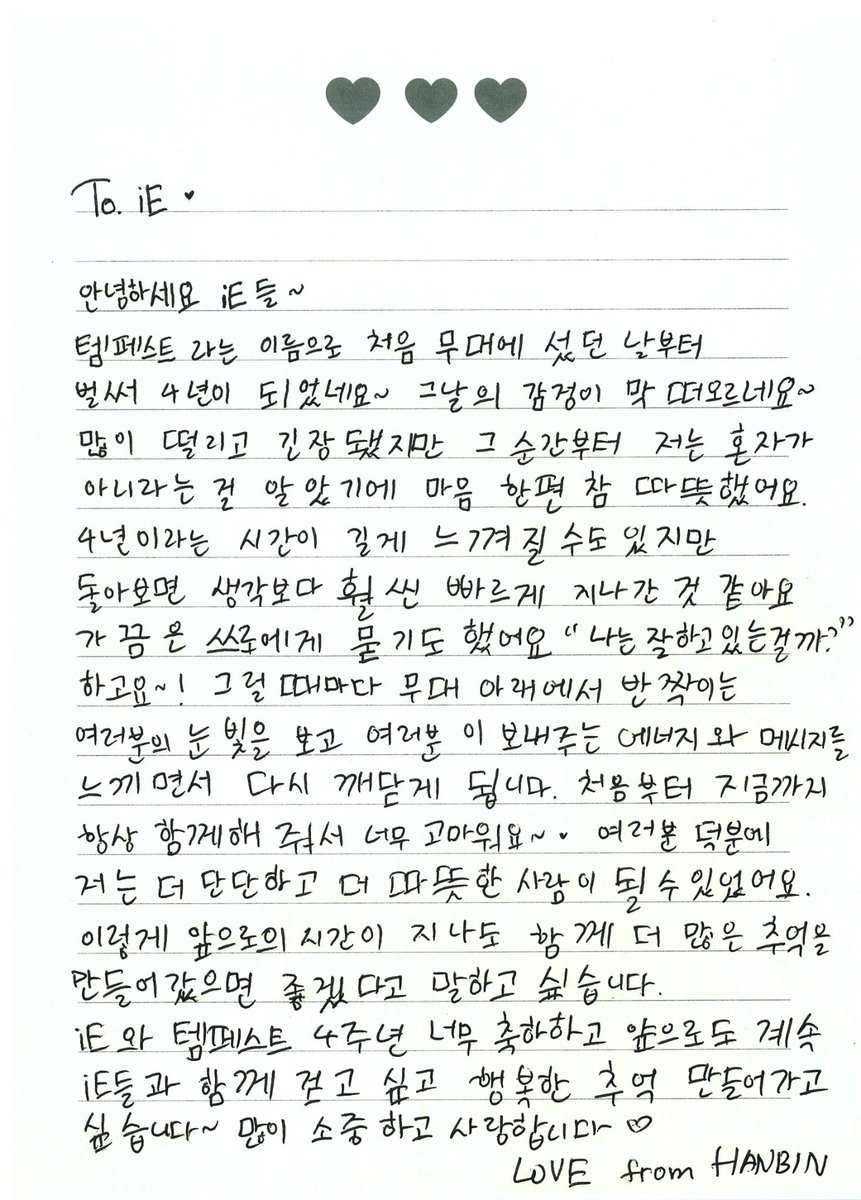 To. iE ♥
안녕하세요 iE들~
템페스트 라는 이름으로 처음 무대에 섰던 날부터
벌써 4년이 되었네요~ 그날의 감정이 막 떠오르네요~
많이 떨리고 긴장 됐지만 그 순간부터 저는 혼자가
아니라는 걸 알았기에 마음 한편 참 따뜻했어요.
4년이라는 시간이 길게 느껴질 수도 있지만
돌아보면 생각보다 훨씬 빠르게 지나간 것 같아요
가끔은 쓰로에게 묻기도 했어요 "나는 잘하고 있는걸까?"
하고요~! 그럴 때마다 무대 아래에서 반짝이는
여러분의 눈빛을 보고 여러분이 보내주는 에너지와 메시지를
느끼면서 다시 깨닫게 됩니다. 처음부터 지금까지
항상 함께해 줘서 너무 고마워요~ ♥ 여러분 덕분에
저는 더 단단하고 더 따뜻한 사람이 될 수 있었어요.
이렇게 앞으로의 시간이 지나도 함께 더 많은 추억을
만들어갔으면 좋겠다고 말하고 싶습니다.
iE와 템페스트 4주년 너무 축하하고 앞으로도 계속
iE들과 함께 걷고 싶고 행복한 추억 만들어가고
싶습니다~ 많이 소중하고 사랑합니다 ♡
LOVE from HANBIN